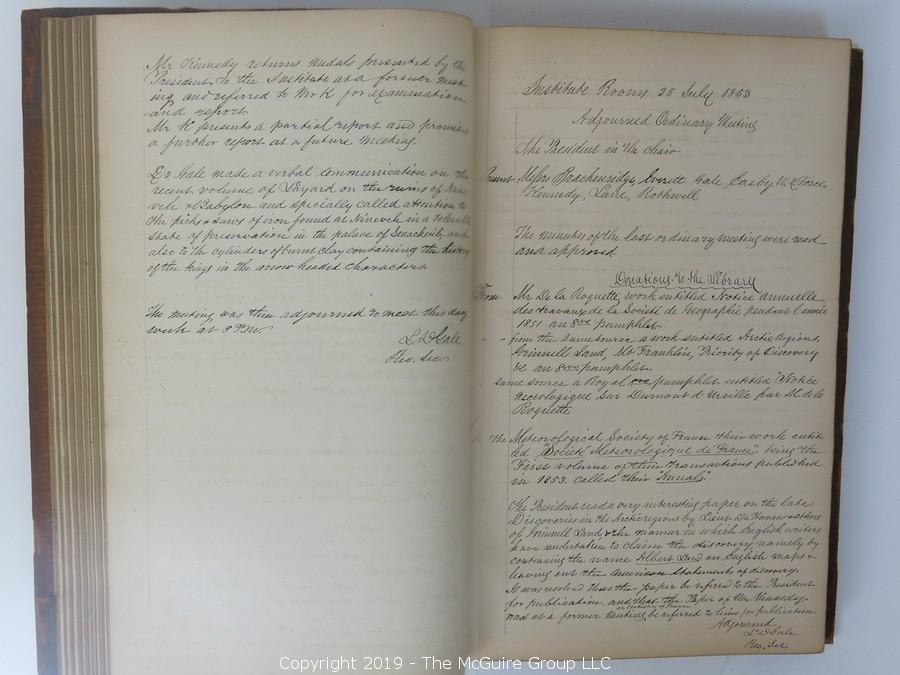 Mr Kennedy returns medals presented by the
President to the Institute at a former meet-
ing and referred to Mr K for examination
and report.
Mr K presents a partial report and promises
a further report at a future meeting.
Dr Gale made a verbal communication on the
recent volume of Layard on the ruins of Nine
veh & Babylon and specially called attention to
the picks & saws of iron found at Nineveh in a tolerable
state of preservation in the palace of Senacherib and
also to the cylinders of burnt clay containing the history
of the kings in the arrow headed characters.
The meeting was then adjourned to meet this day
week at 8 P.M.
L D Gale
Rec. Sec
Institute Rooms 25 July 1853
Adjourned Ordinary Meeting
The President in the chair
Present Messrs Brackenridge, Everett Gale, Easby W. Q Force,
Kennedy, Lane, Rothwell
The minutes of the last ordinary meeting were read
and approved
Donations to the Library
From Mr De la Roquette work entitled Notice annuelle
des travaux de la Société de Geographie pendant l'année
1851 an 8vo pamphlet
" from the same source a work entitled Arctic regions,
Grinnell Land, Mt Franklin, Priority of Discovery
&c an 8vo pamphlet.
same source a Royal 8vo pamphlet entitled "Notice
necrologique sur Dumont d'Urville par M. de la
Roquette
The Meteorological Society of France their work entit
led "Société Meteorologique de France" being the
First volume of their transactions published
in 1853 called their "Annals".
The President read a very interesting paper on the late
Discoveries in the Arctic regions by Lieut De Haven & others
of Grinnell Land, & the manner in which English writers
have undertaken to claim the discovery namely by
continuing the name Albert Land on English maps &
leaving out the American statements of discovery.
It was resolved that the paper be referred to the President
for publication and that the Paper of Mr Kennedy
on Statistics of France
read at a former meeting be referred to him for publication.
Adjourned
L D Gale
Rec. Sec
Copyright 2019 - The McGuire Group LLC